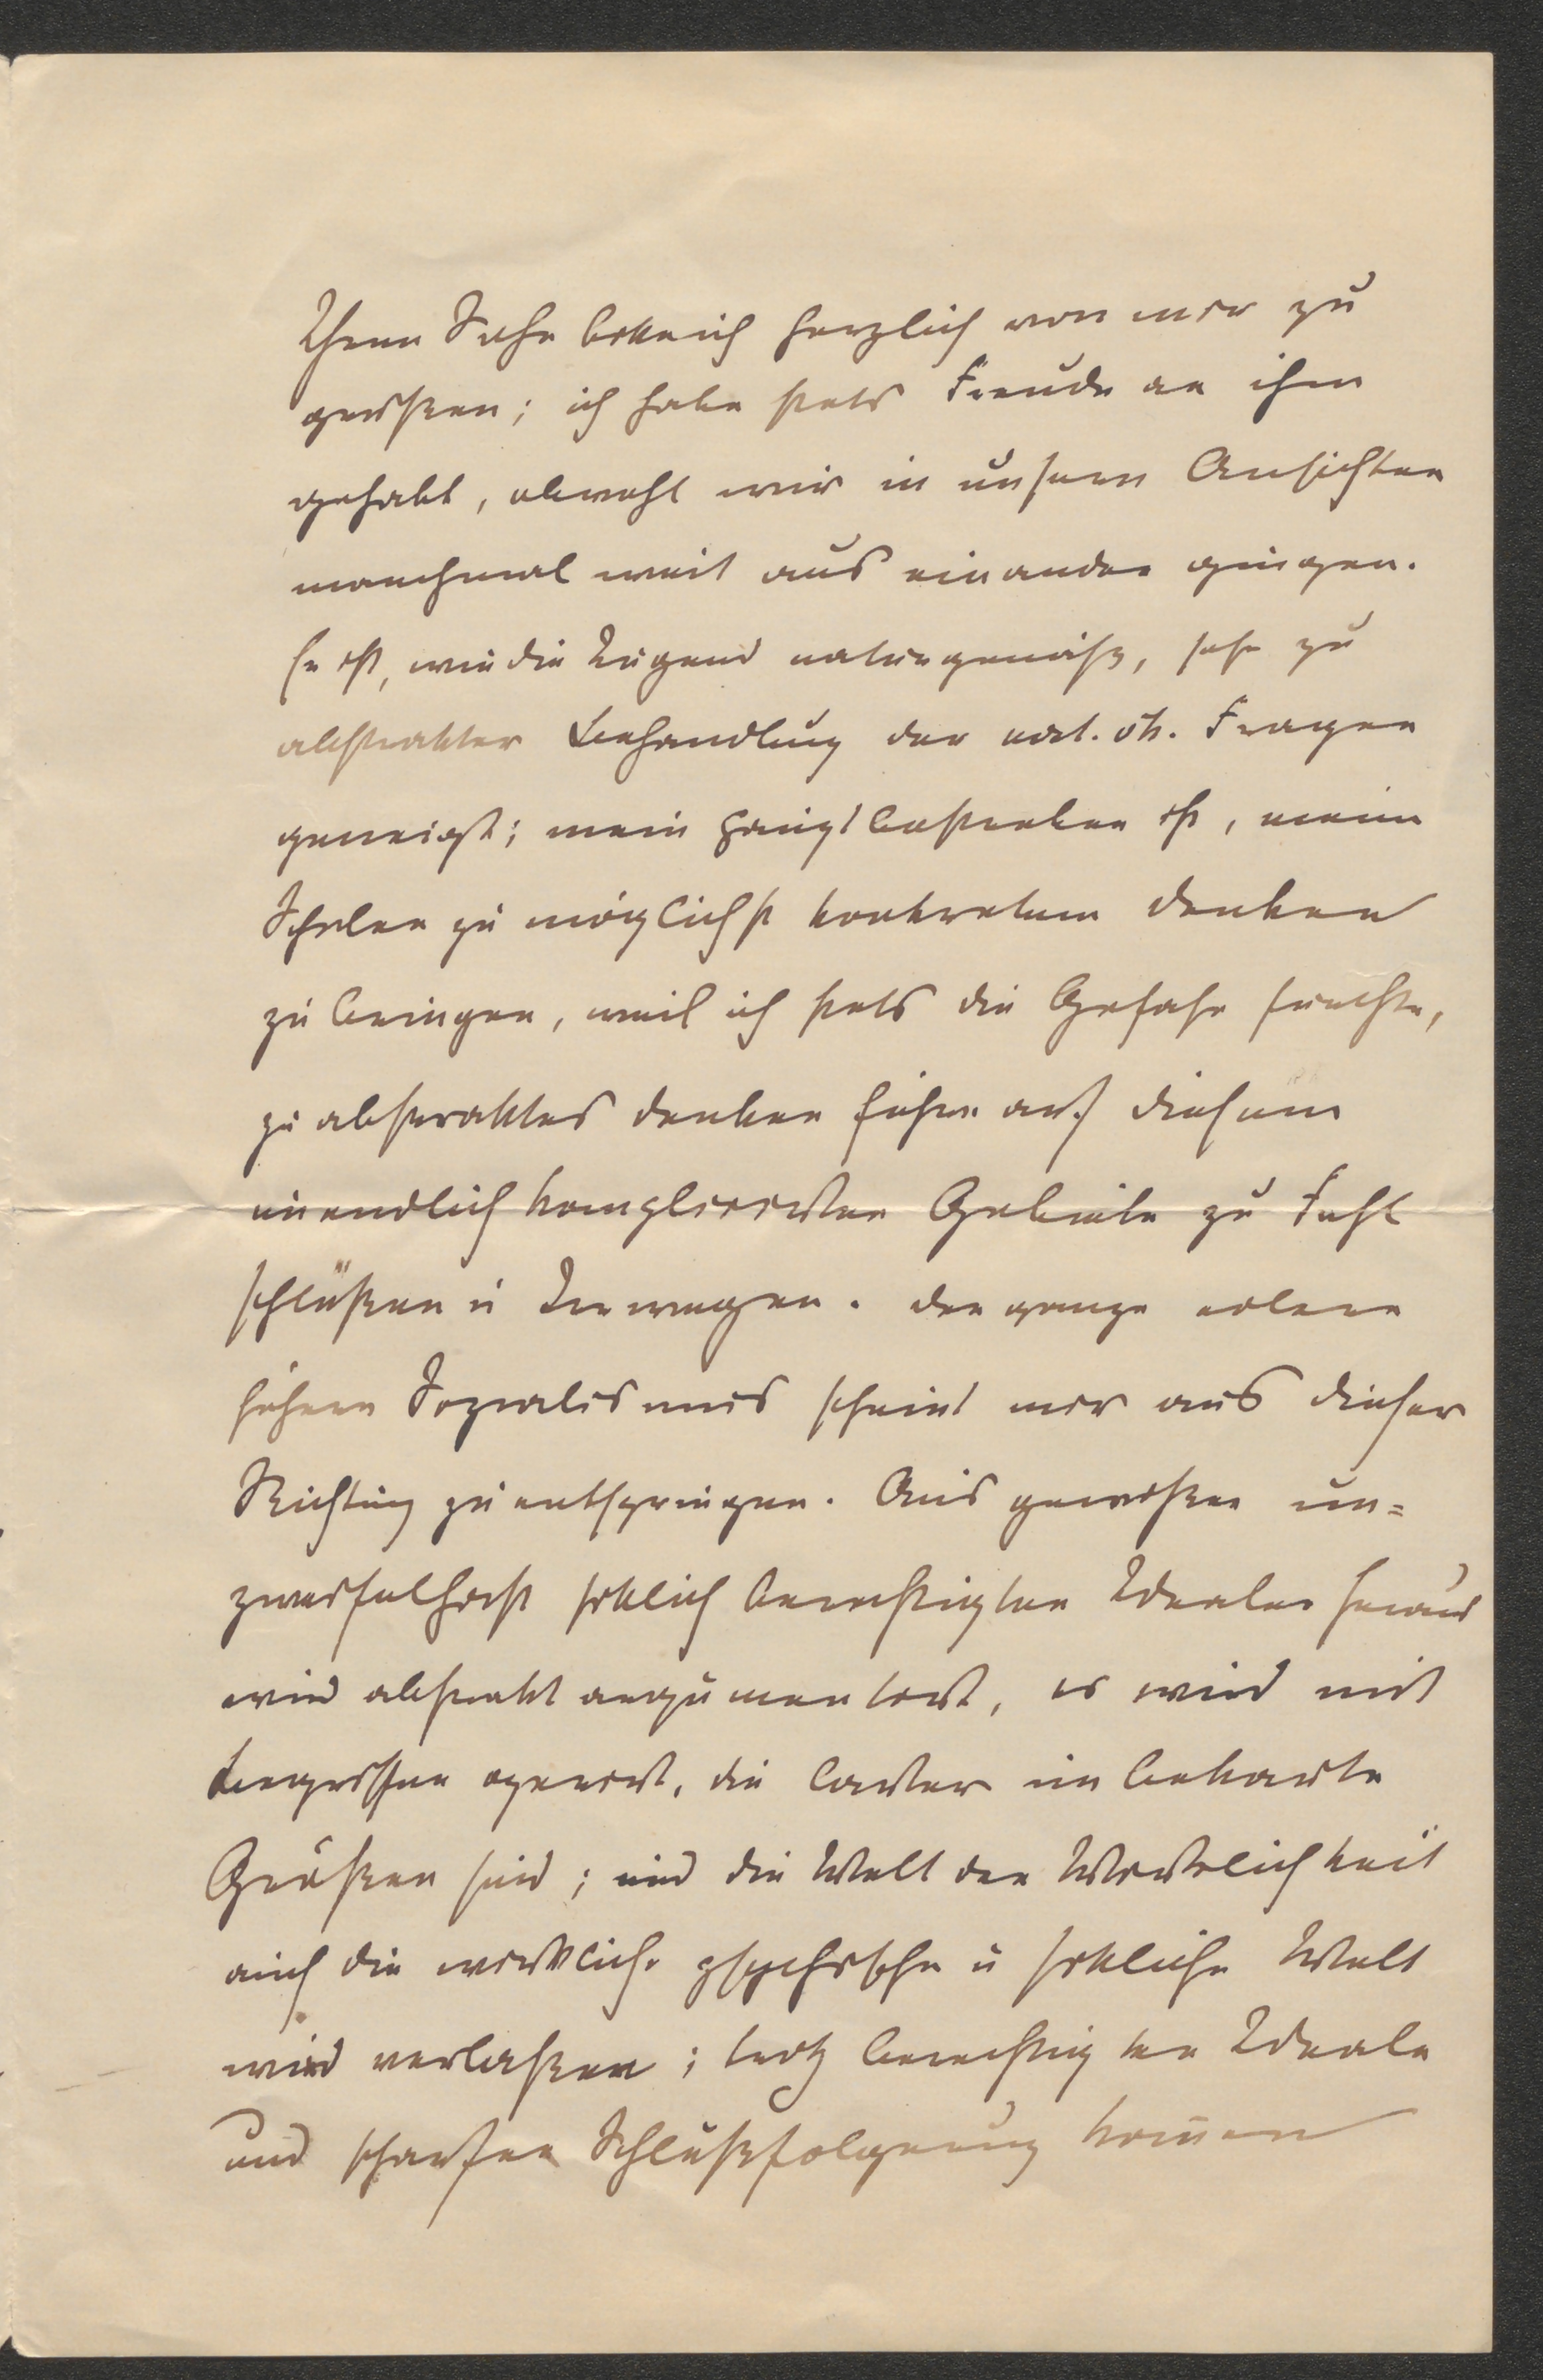 Ihren Sohn bitte ich herzlich von mir zu
grüßen; ich habe stets Freude an ihm
gehabt, obwohl wir in unsern Ansichten
manchmal weit aus einander gingen.
Er ist, wie die Jugend naturgemäß, sehr zu
abstrakter Behandlung der nat. ök. Fragen
geneigt; mein Hauptbestreben ist, meine
Schüler zu möglichst konkretem Denken
zu bringen, weil ich stets die Gefahr fürchte,
zu abstraktes Denken führe auf diesem
unendlich komplizirten Gebiete zu Fehl
schlüßen u Irrwegen. Der ganze edlere
höhere Sozialismus scheint mir aus dieser
Richtung zu entspringen. Aus gewißen un=
zweifelhaft sittlich berechtigten Idealen heraus
wird abstrakt argumentirt, es wird mit
Begriffen operirt, die lauter unbekannte
Größen sind; und die Welt der Wirklichkeit
auch die wirkliche psychische u sittliche Welt
wird verlaßen; trotz berechtigter Ideale
und scharfer Schlußfolgerung kommen